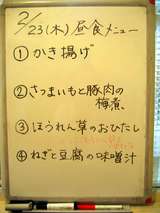 2/23(木) 昼食メニュー
① かき揚げ
② さつまいもと豚肉の
梅煮
③ ほうれん草のおひたし
④ ねぎと豆腐の味噌汁